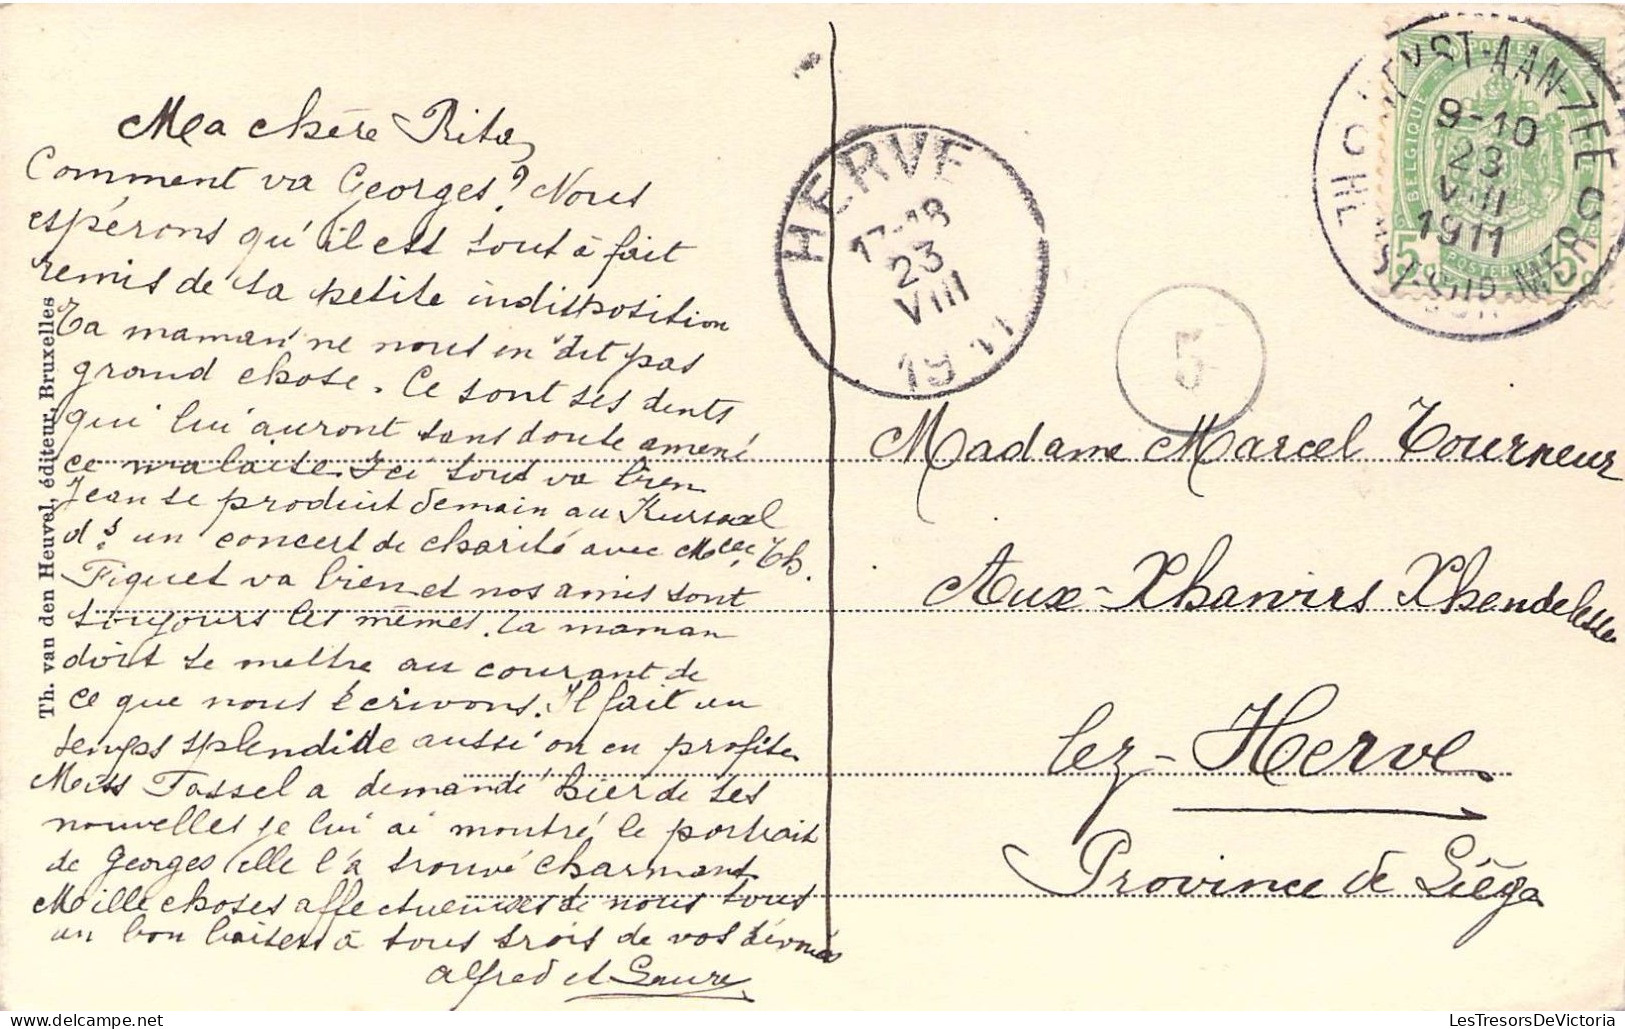 Ma chère Rita,
Comment va Georges? Nous
espérons qu'il est tout à fait
remis de sa petite indisposition
Ta maman ne nous en dit pas
grand chose. Ce sont ses dents
qui lui auront sans doute amené
ce malaise. Ici tout va bien
Jean se produit demain au Kursaal
ds un concert de charité avec Melle Th.
Fiquet va bien et nos amis sont
toujours les mêmes. Ta maman
doit te mettre au courant de
ce que nous écrivons. Il fait un
temps splendide aussi on en profite
Miss Tassel a demandé hier de tes
nouvelles je lui ai montré le portrait
de Georges elle l'a trouvé charmant
Mille choses affectueuses de nous tous
un bon baiser à tous trois de vos dévoués
Alfred et Laure
Th. van den Heuvel, éditeur, Bruxelles
HERVE
17-18
23
VIII
1911
5
HEYST-AAN-ZEE
9-10
23
VIII
1911
SUR-MER
POSTES
BELGIQUE
BELGIE
5
5
POSTERIJEN
Madame Marcel Tourneur
Aux-Xhawirs Xhendelesse
lez-Herve
Province de Liége
LesTresorsDeVictoria